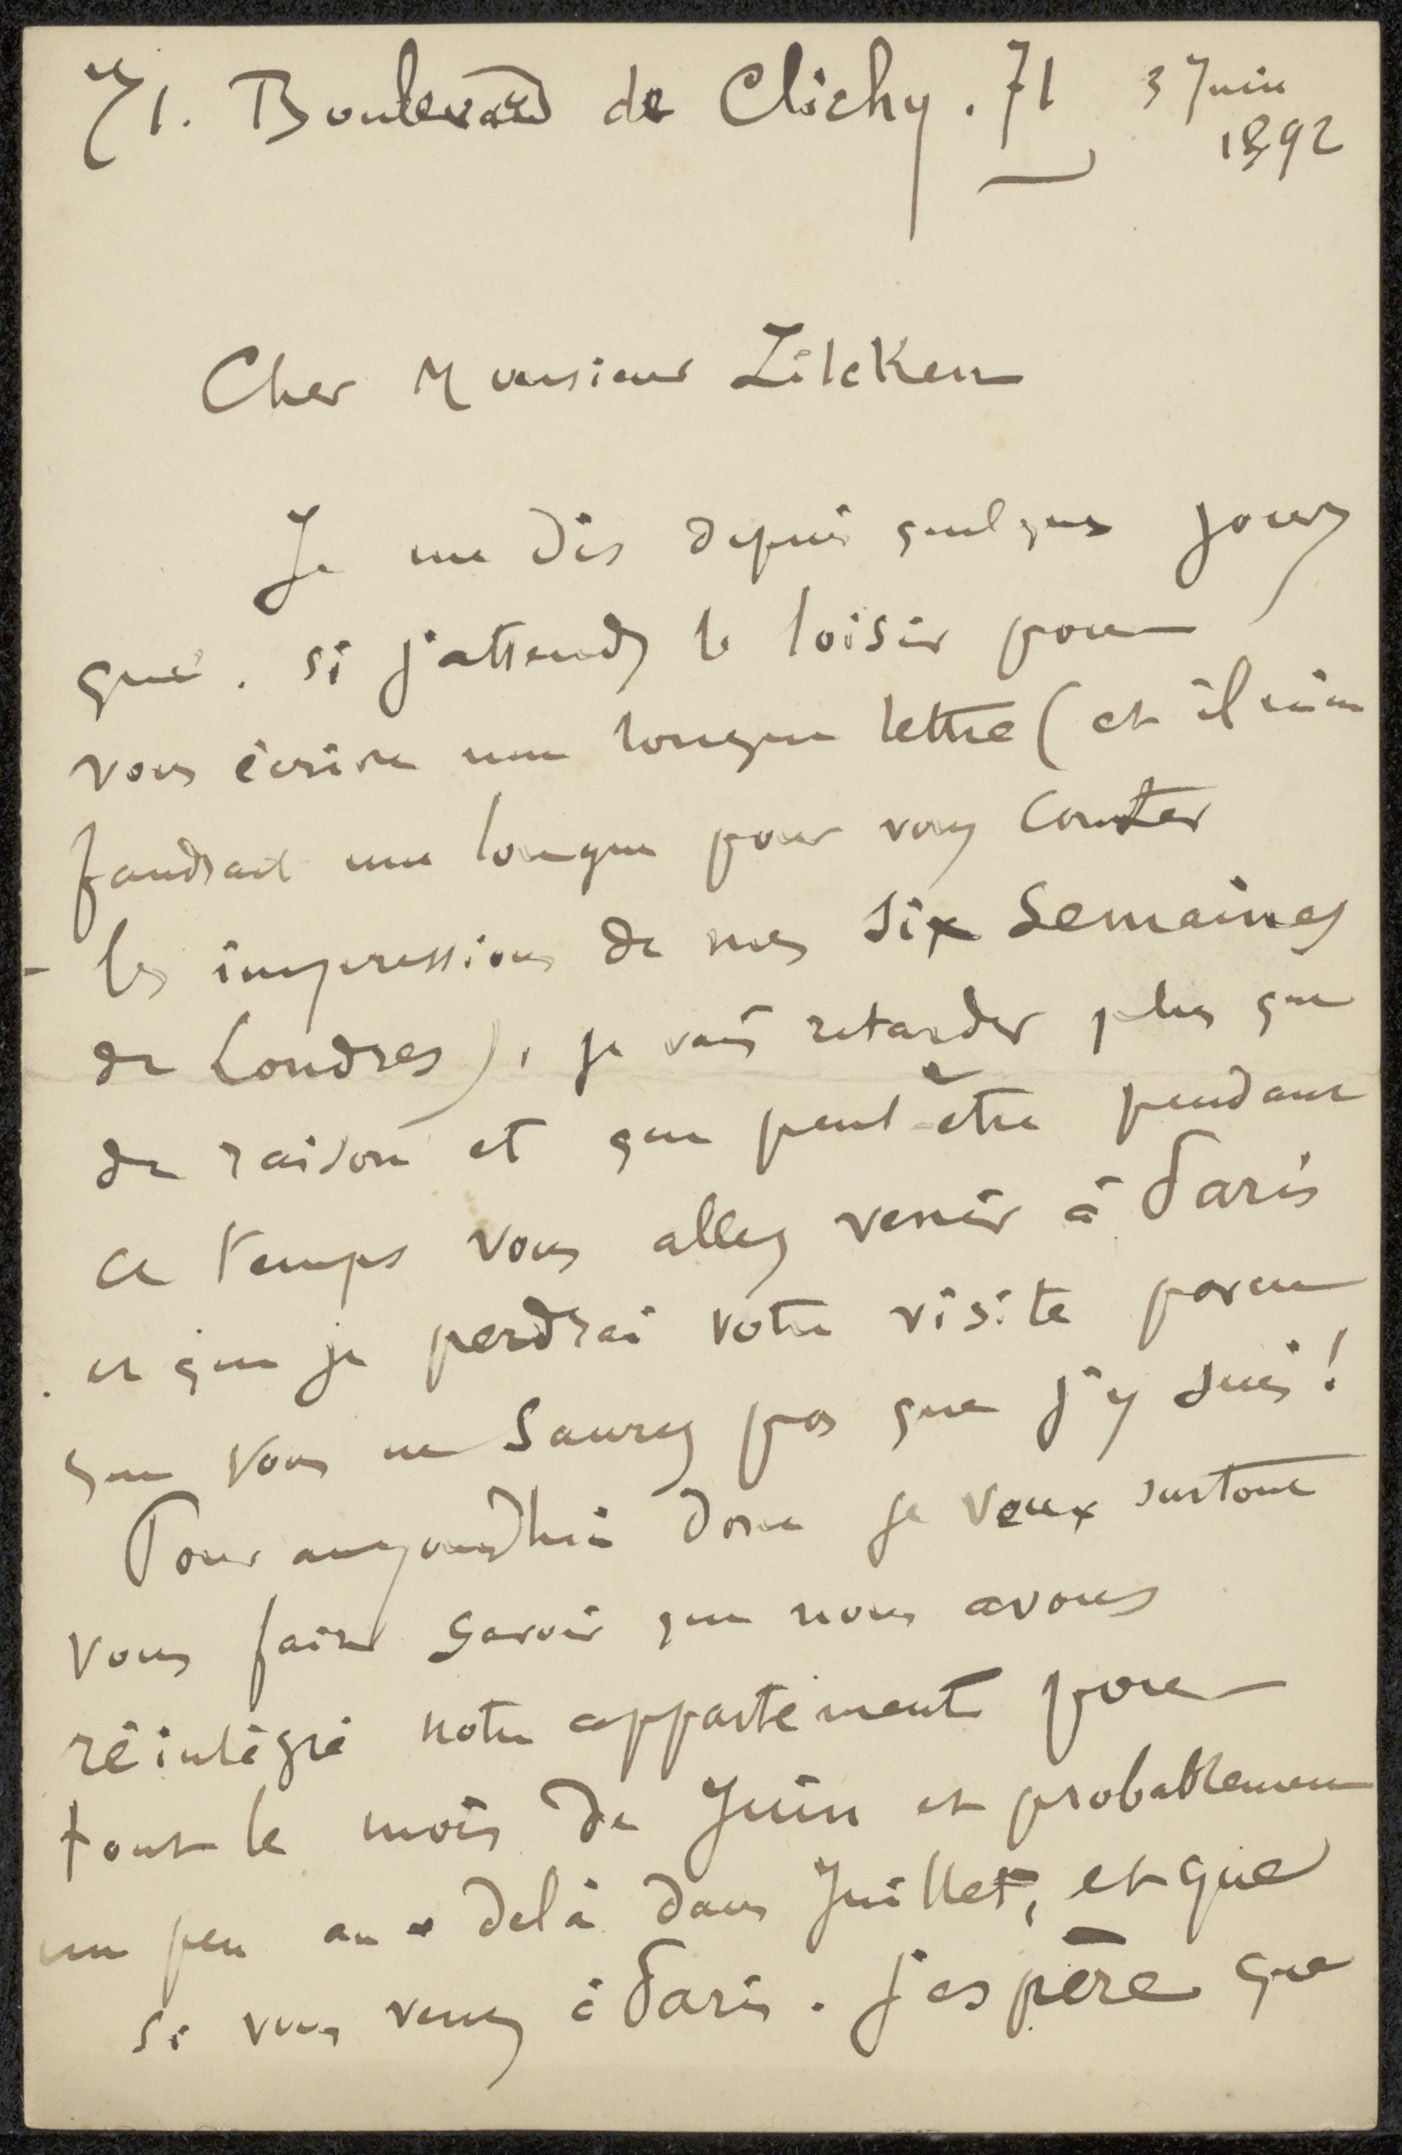 71. Boulevard de Clichy. 71 3 Juin
1892
Cher Monsieur Zilcken
Je me dis depuis quelques jours
que. si j'attends le loisir pour
vous écrire une longue lettre (et il m'en
faudrait une longue pour vous conter
les impressions de mes six semaines
de Londres), je vais retarder plus que
de raison et que peut-être pendant
ce temps vous allez venir à Paris
et que je perdrai votre visite parce
que vous ne saurez pas que j'y suis!
Pour aujourd'hui donc je veux surtout
vous faire savoir que nous avons
réintégré notre appartement pour
tout le mois de Juin et probablement
un peu au-delà dans Juillet, et que
si vous venez à Paris. j'espère que